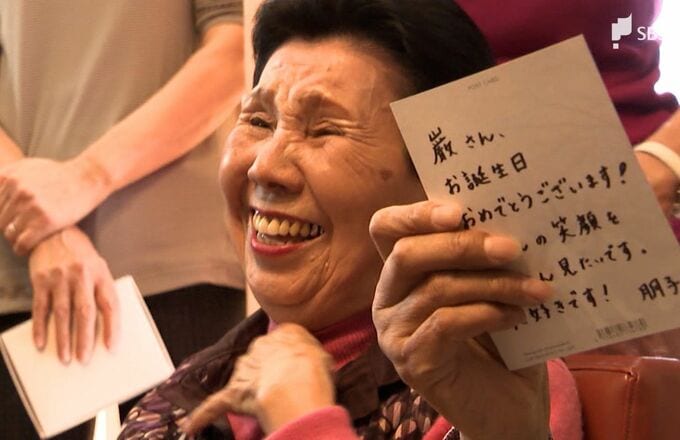 SBS
POST CARD
巌さん、
お誕生日
おめでとうございます!
んの笑顔を
ん見たいです。
好きです! 朋子